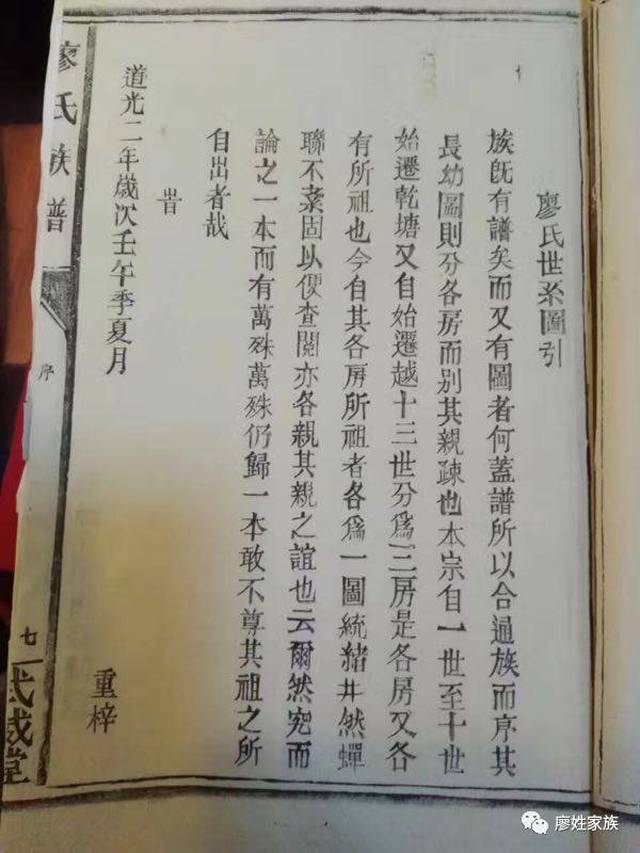 廖氏世系圖引
族旣有譜矣而又有圖者何蓋譜所以合通族而序其
長幼圖則分各房而别其親疎也本宗自一世至十世
始遷乾塘又自始遷越十三世分爲三房是各房又各
有所祖也今自其各房所祖者各爲一圖統緒井然蟬
聯不紊固以便查閱亦各親其親之誼也云爾然究而
論之一本而有萬殊萬殊仍歸一本敢不尊其祖之所
自出者哉
旹
道光二年歲次壬午季夏月
重梓
廖氏族譜
序
七
武威堂
廖姓家族